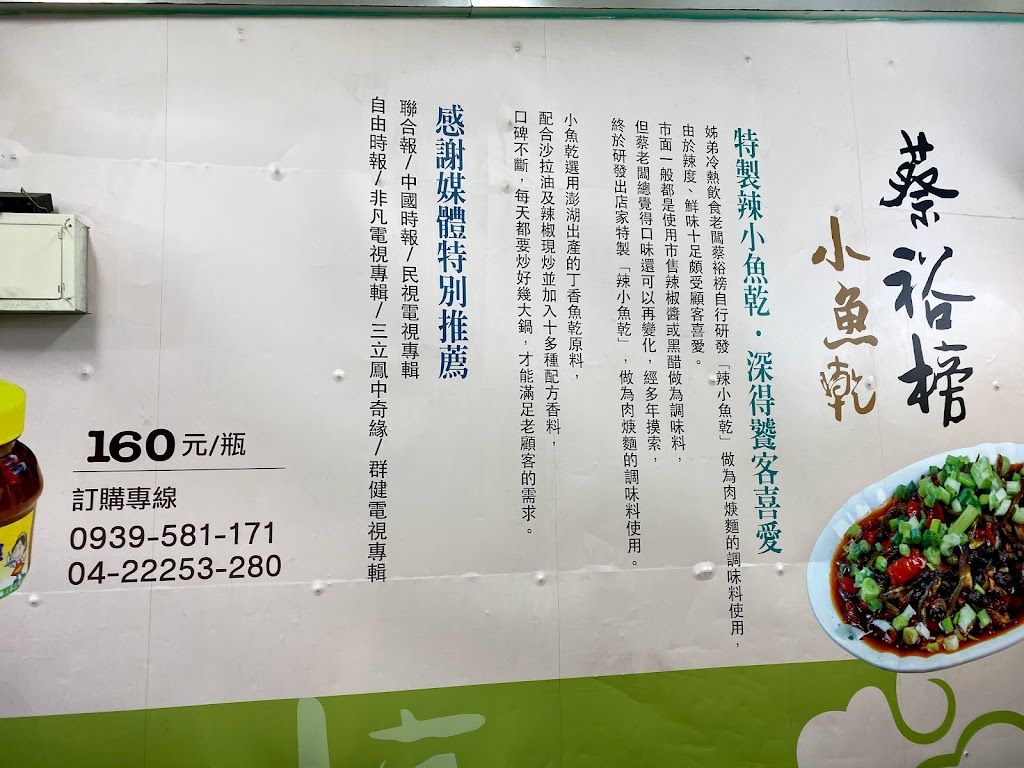 蔡裕榜
小魚乾
特製辣小魚乾・深得饕客喜愛
姊弟冷熱飲食老闆蔡裕榜自行研發「辣小魚乾」做為肉焿麵的調味料使用，
由於辣度、鮮味十足頗受顧客喜愛。
市面一般都是使用市售辣椒醬或黑醋做為調味料，
但蔡老闆總覺得口味還可以再變化，經多年摸索，
終於研發出店家特製「辣小魚乾」，做為肉焿麵的調味料使用。
小魚乾選用澎湖出產的丁香魚乾原料，
配合沙拉油及辣椒現炒並加入十多種配方香料，
口碑不斷，每天都要炒好幾大鍋，才能滿足老顧客的需求。
感謝媒體特別推薦
聯合報/中國時報/民視電視專輯
自由時報/非凡電視專輯/三立鳳中奇緣/群健電視專輯
160元/瓶
訂購專線
0939-581-171
04-22253-280